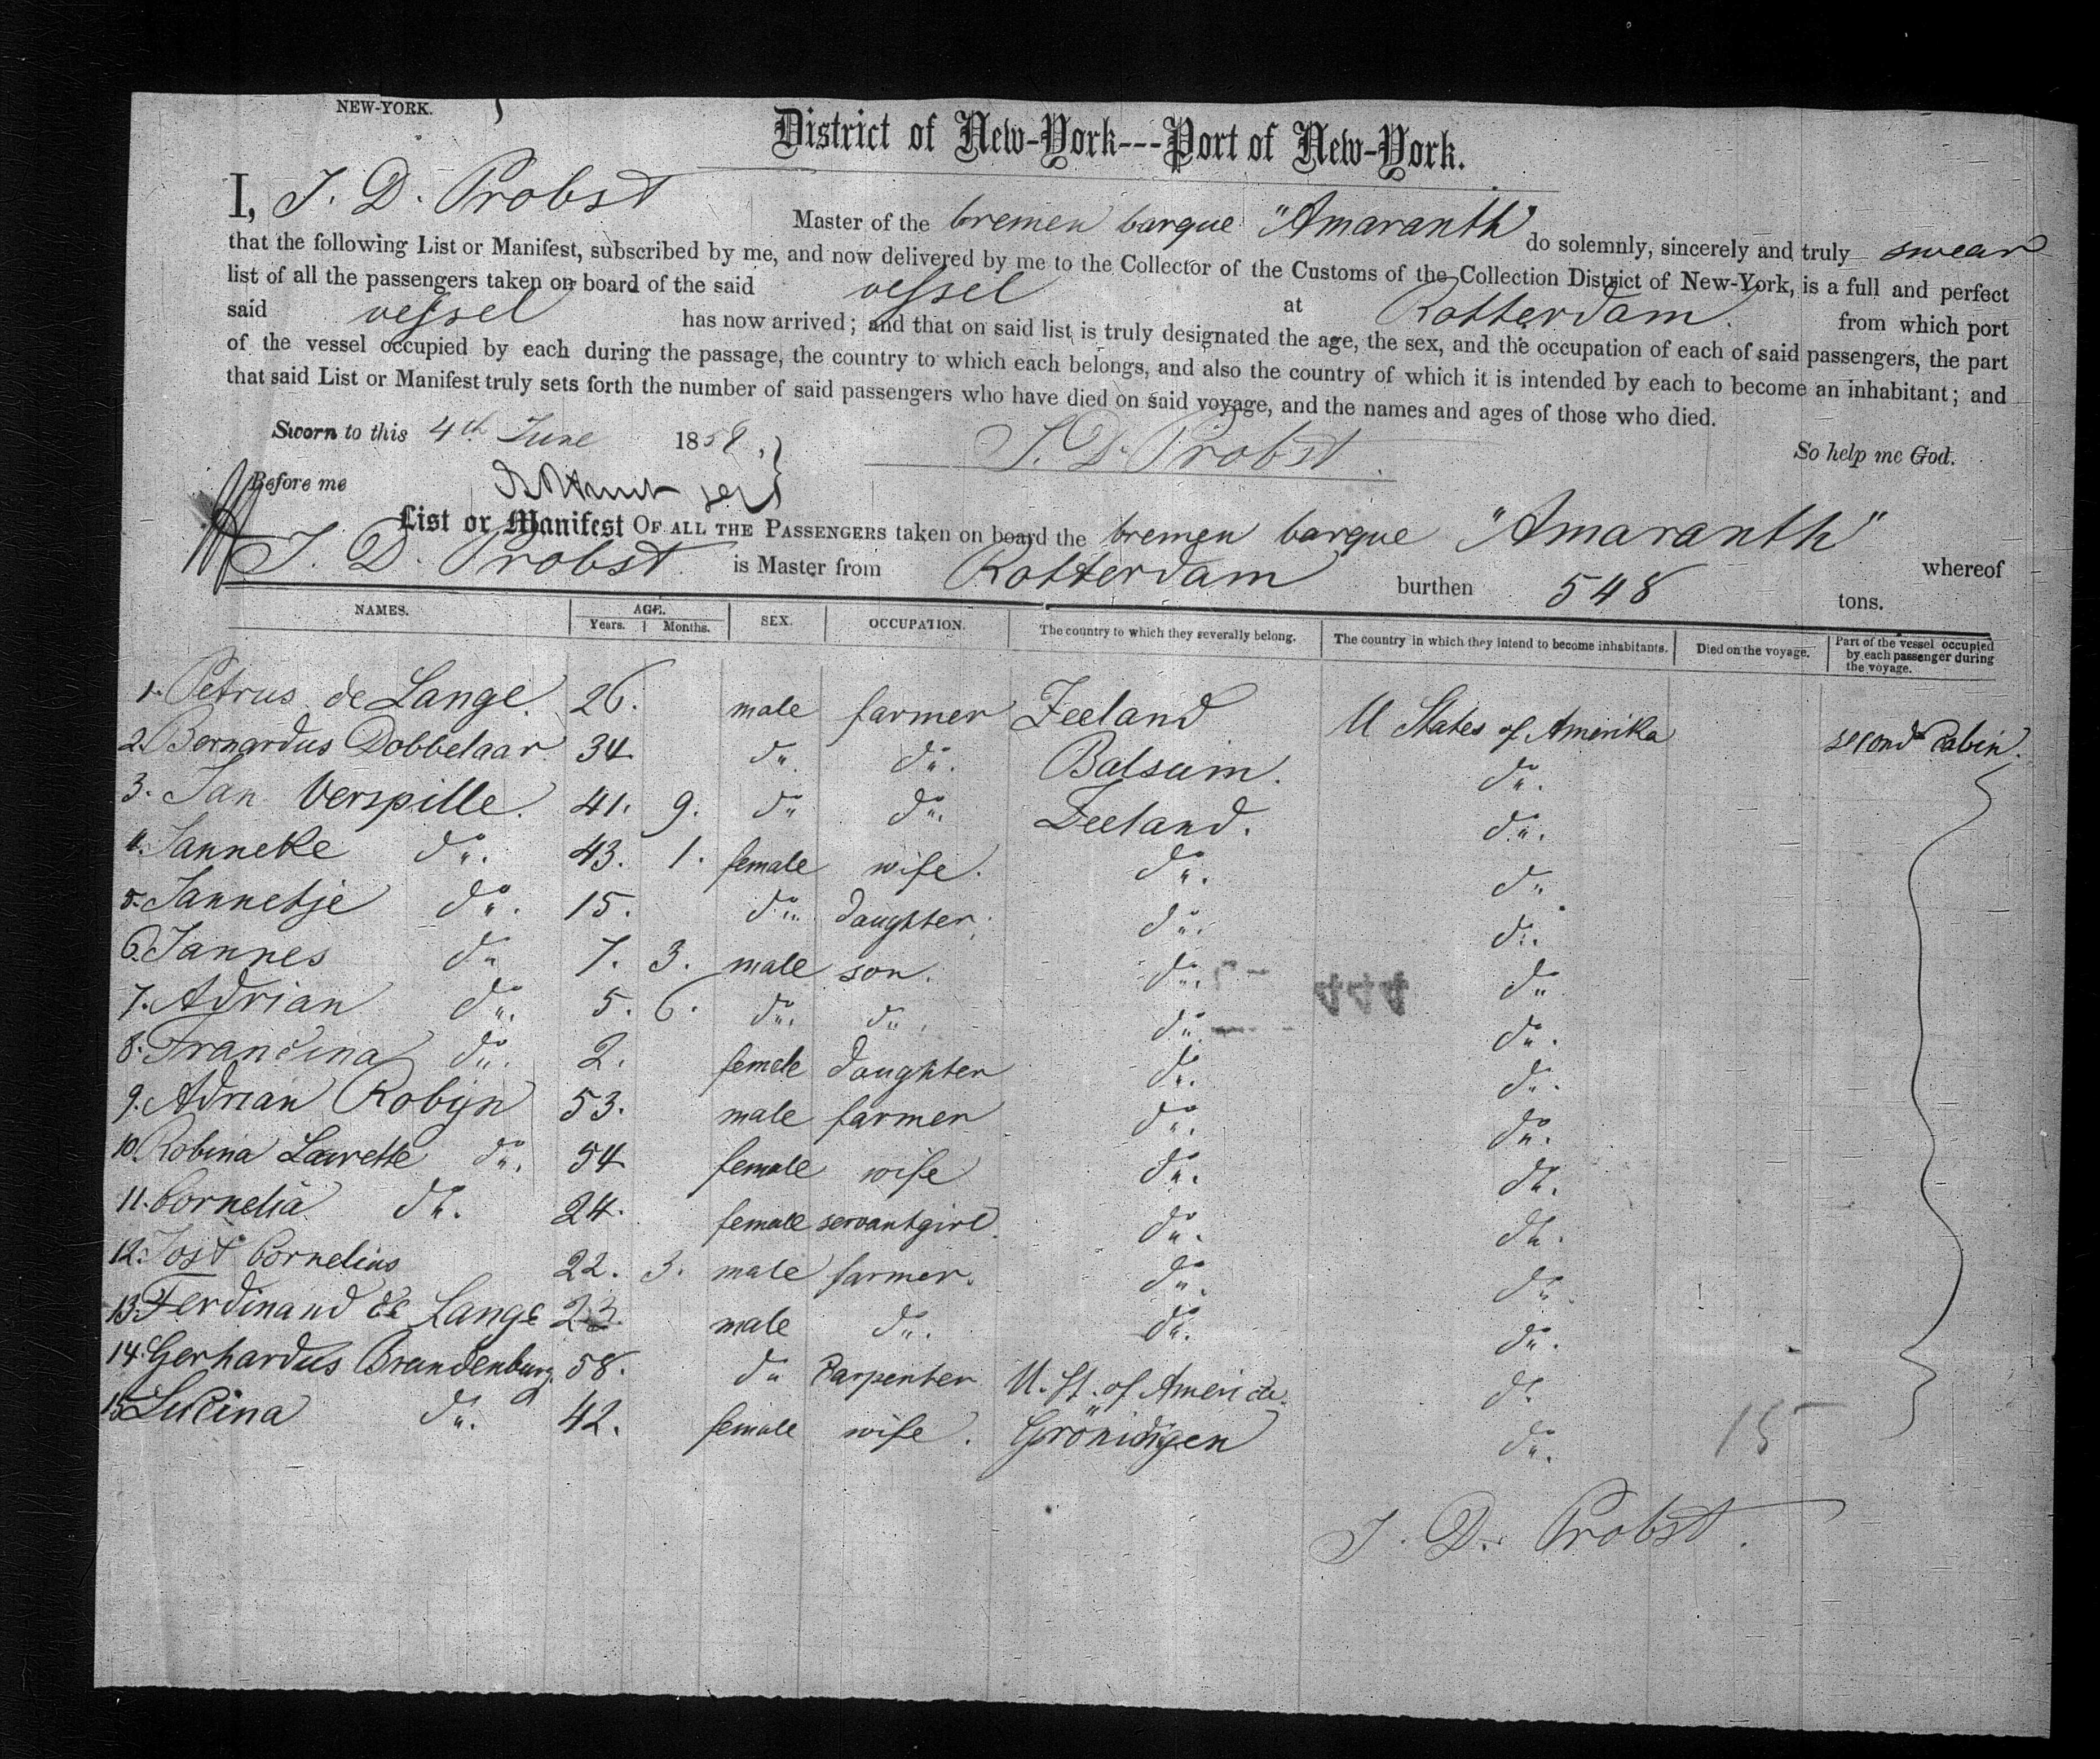 NEW-YORK.
District of New-York---Port of New-York.
I, J. D. Probst Master of the bremen barque "Amaranth" do solemnly, sincerely and truly swear
that the following List or Manifest, subscribed by me, and now delivered by me to the Collector of the Customs of the Collection District of New-York, is a full and perfect
list of all the passengers taken on board of the said vessel at Rotterdam. from which port
said vessel has now arrived; and that on said list is truly designated the age, the sex, and the occupation of each of said passengers, the part
of the vessel occupied by each during the passage, the country to which each belongs, and also the country of which it is intended by each to become an inhabitant; and
that said List or Manifest truly sets forth the number of said passengers who have died on said voyage, and the names and ages of those who died.
Sworn to this 4th June 1859, J. D. Probst. So help me God.
Before me
List or Manifest OF ALL THE PASSENGERS taken on board the bremen barque "Amaranth" whereof
J. D. Probst. is Master from Rotterdam burthen 548 tons.
NAMES. AGE. Years. Months. SEX. OCCUPATION. The country to which they severally belong. The country in which they intend to become inhabitants. Died on the voyage. Part of the vessel occupied by each passenger during the voyage.
1. Petrus de Lange. 26. male farmer Zeeland U States of Amerika second Cabin.
2. Bernardus Dobbelaar. 34. do. do. Balsuim. do.
3. Jan Verspille. 41. 9. do do. Zeeland. do.
4. Janneke do. 43. 1. female wife. do. do
5. Jannetje do. 15. do. daughter. do. do.
6. Jannes do 7. 3. male son. do. do
7. Adrian do. 5. 6. do. do. do. do.
444
8. Francina do. 2. female daughter do. do.
9. Adrian Robijn 53. male farmer do. do.
10. Robina Laurette do. 54 female wife do. do.
11. Cornelia do. 24. female servantgirl. do. do.
12. Jost Cornelius 22. 3. male farmer. do. do.
13. Ferdinand de Lange 23. male do. do. do.
14. Gerhardus Brandenburg. 58. do Carpenter U. St. of America. do.
15 Lucina do. 42. female wife. Gröningen do. 15
J. D. Probst.